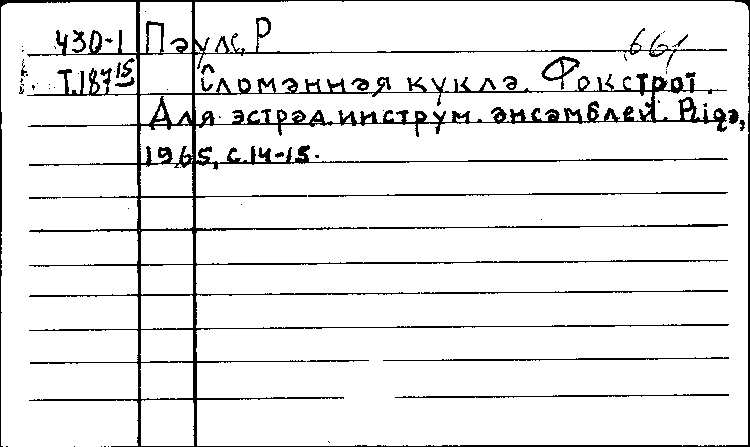 430-1 Паулс, Р. 661
Т.187¹⁵ Сломанная кукла. Фокстрот.
Для эстрад. инструм. ансамблей. Rīgа,
1965, с.14-15.